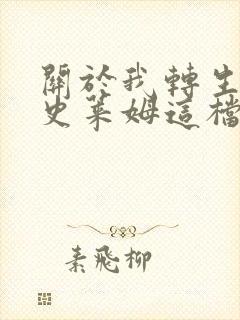 關於我轉生
史萊姆這檔
素飛柳